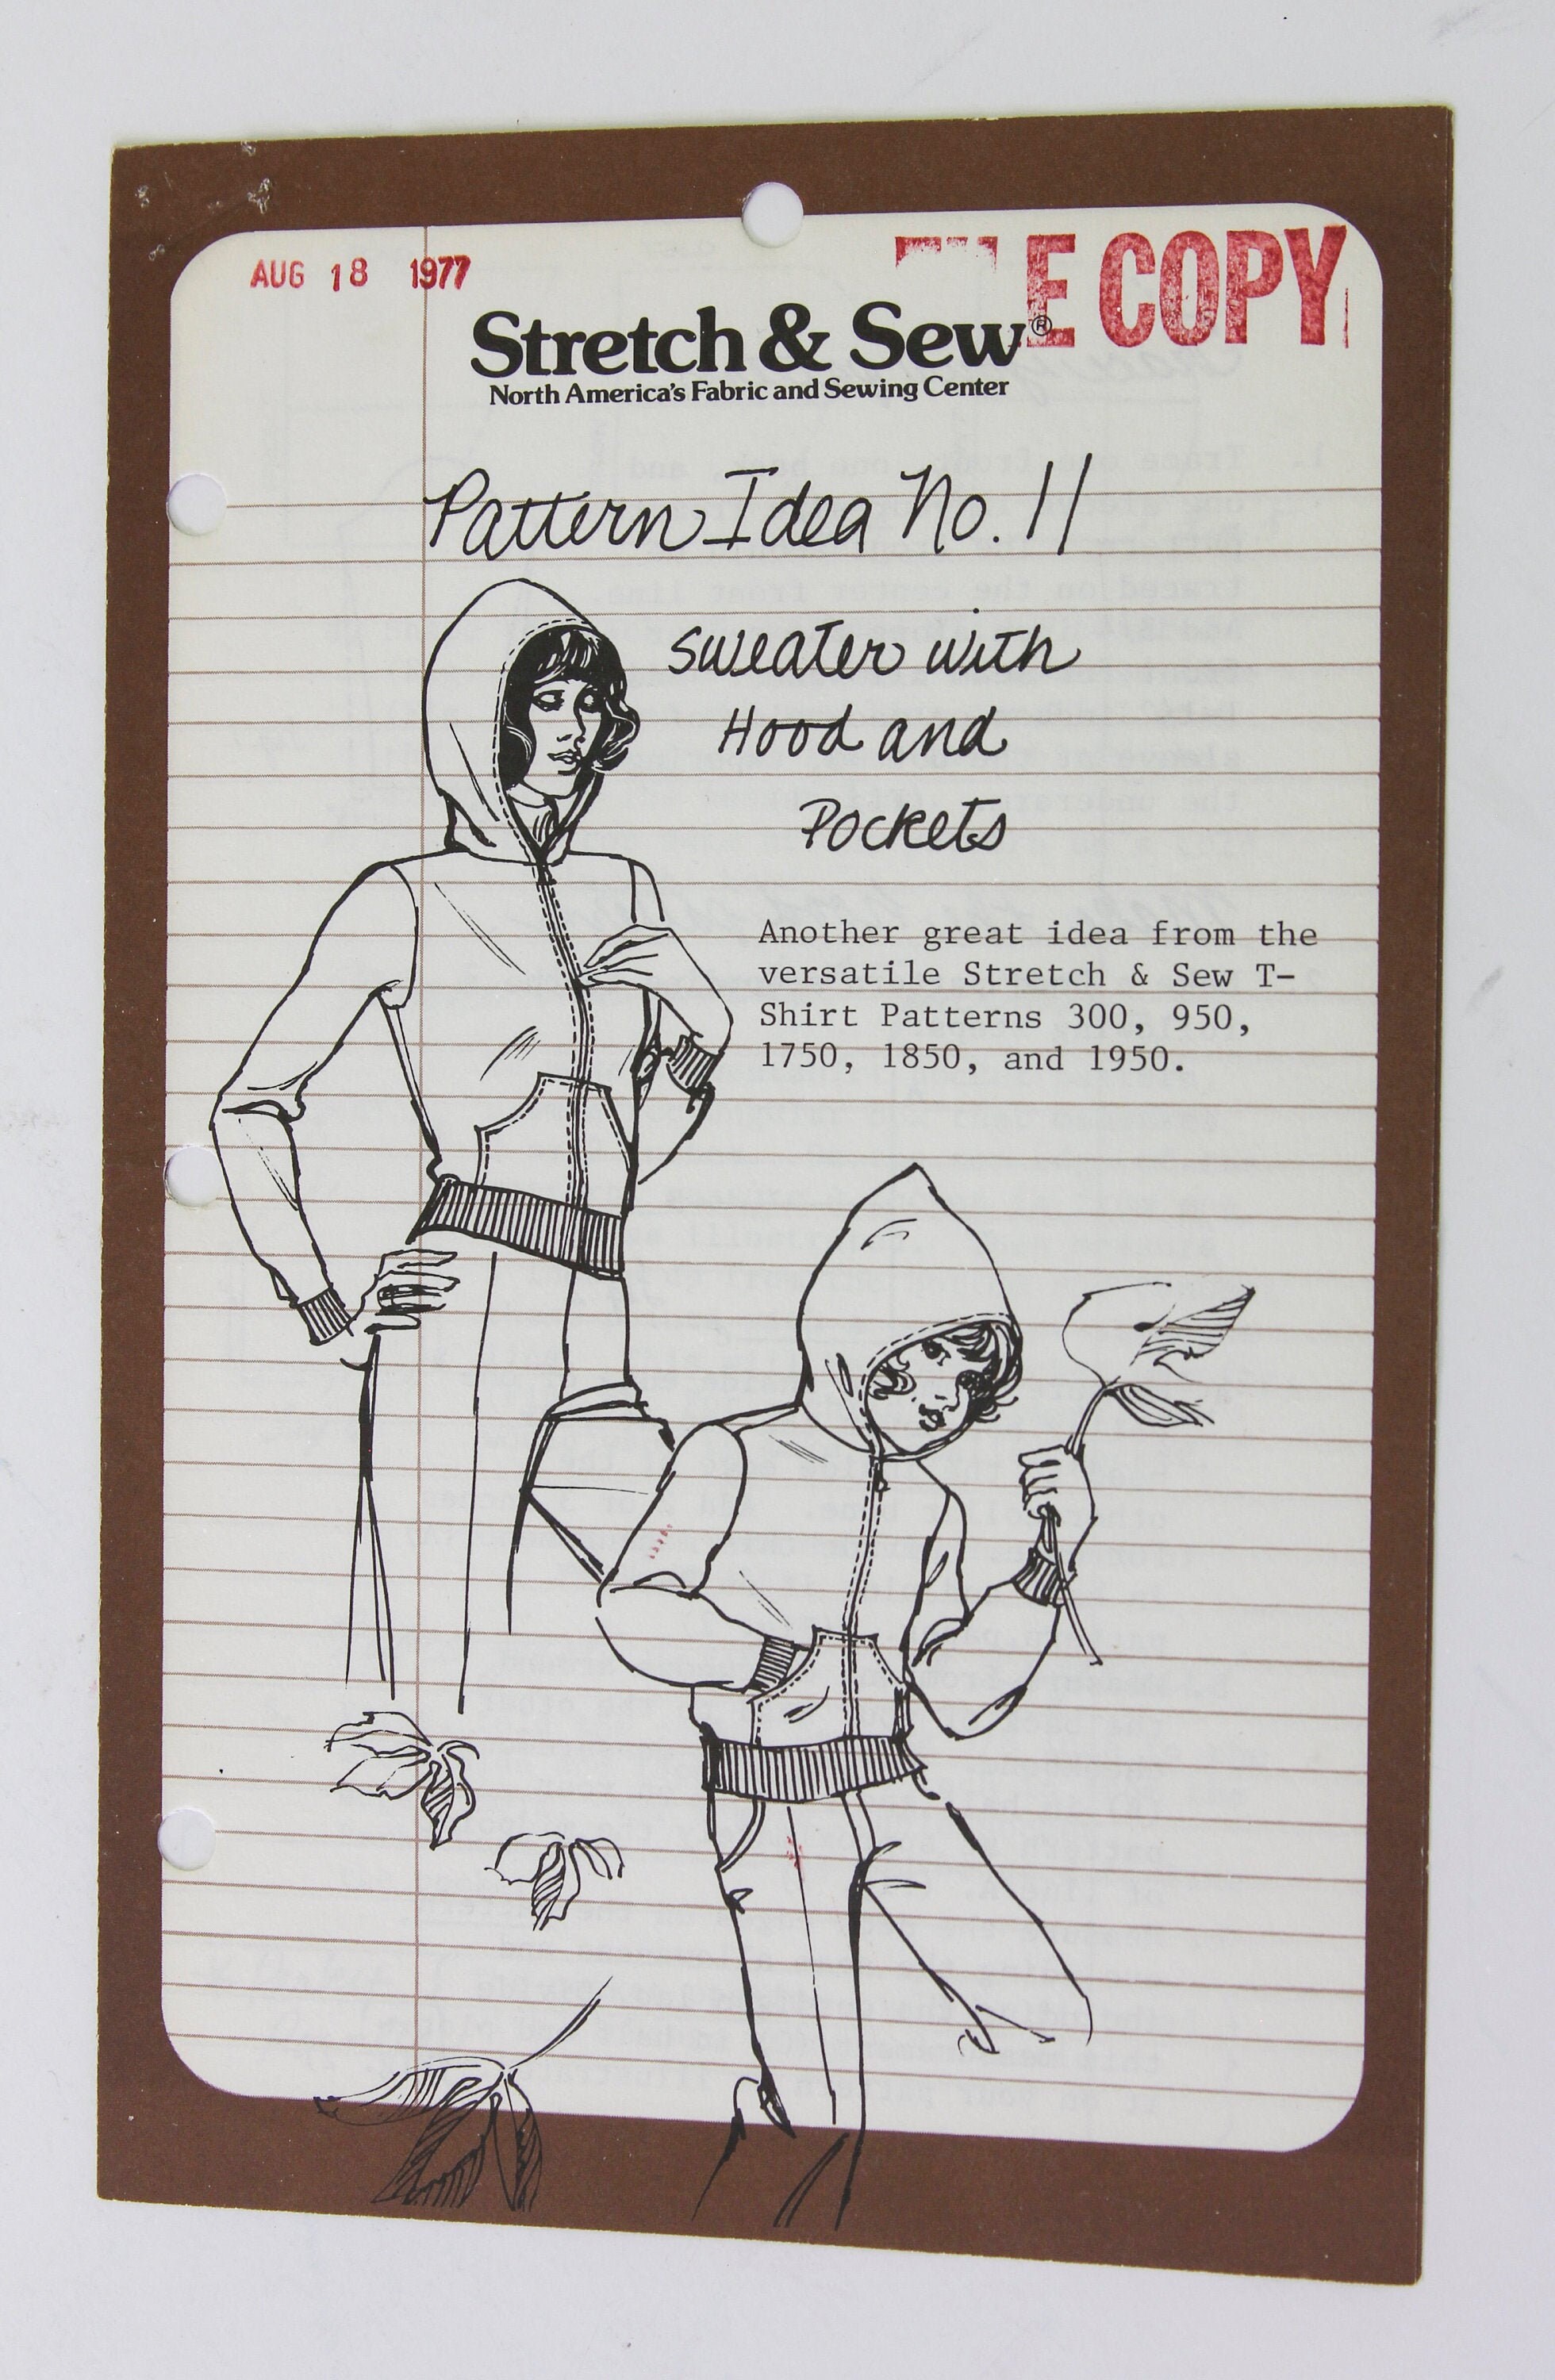 AUG 18 1977
E COPY
Stretch & Sew®
North America's Fabric and Sewing Center
Pattern Idea No. 11
Sweater with
Hood and
Pockets
Another great idea from the
versatile Stretch & Sew T-
Shirt Patterns 300, 950,
1750, 1850, and 1950.